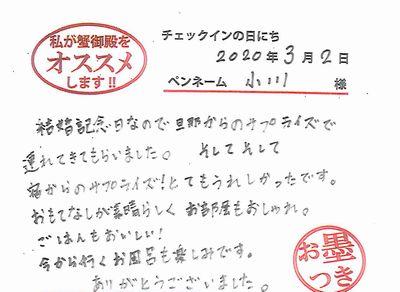 私が蟹御殿を
オススメ
します!!
チェックインの日にち
2020年3月2日
ペンネーム 小川 様
結婚記念日なので旦那からのサプライズで
連れてきてもらいました。 そして そして
宿からのサプライズ!とてもうれしかったです。
おもてなしが素晴らしく お部屋もおしゃれ。
ごはんもおいしい!
今から行くお風呂も楽しみです。
ありがとうございました。
お墨
つき